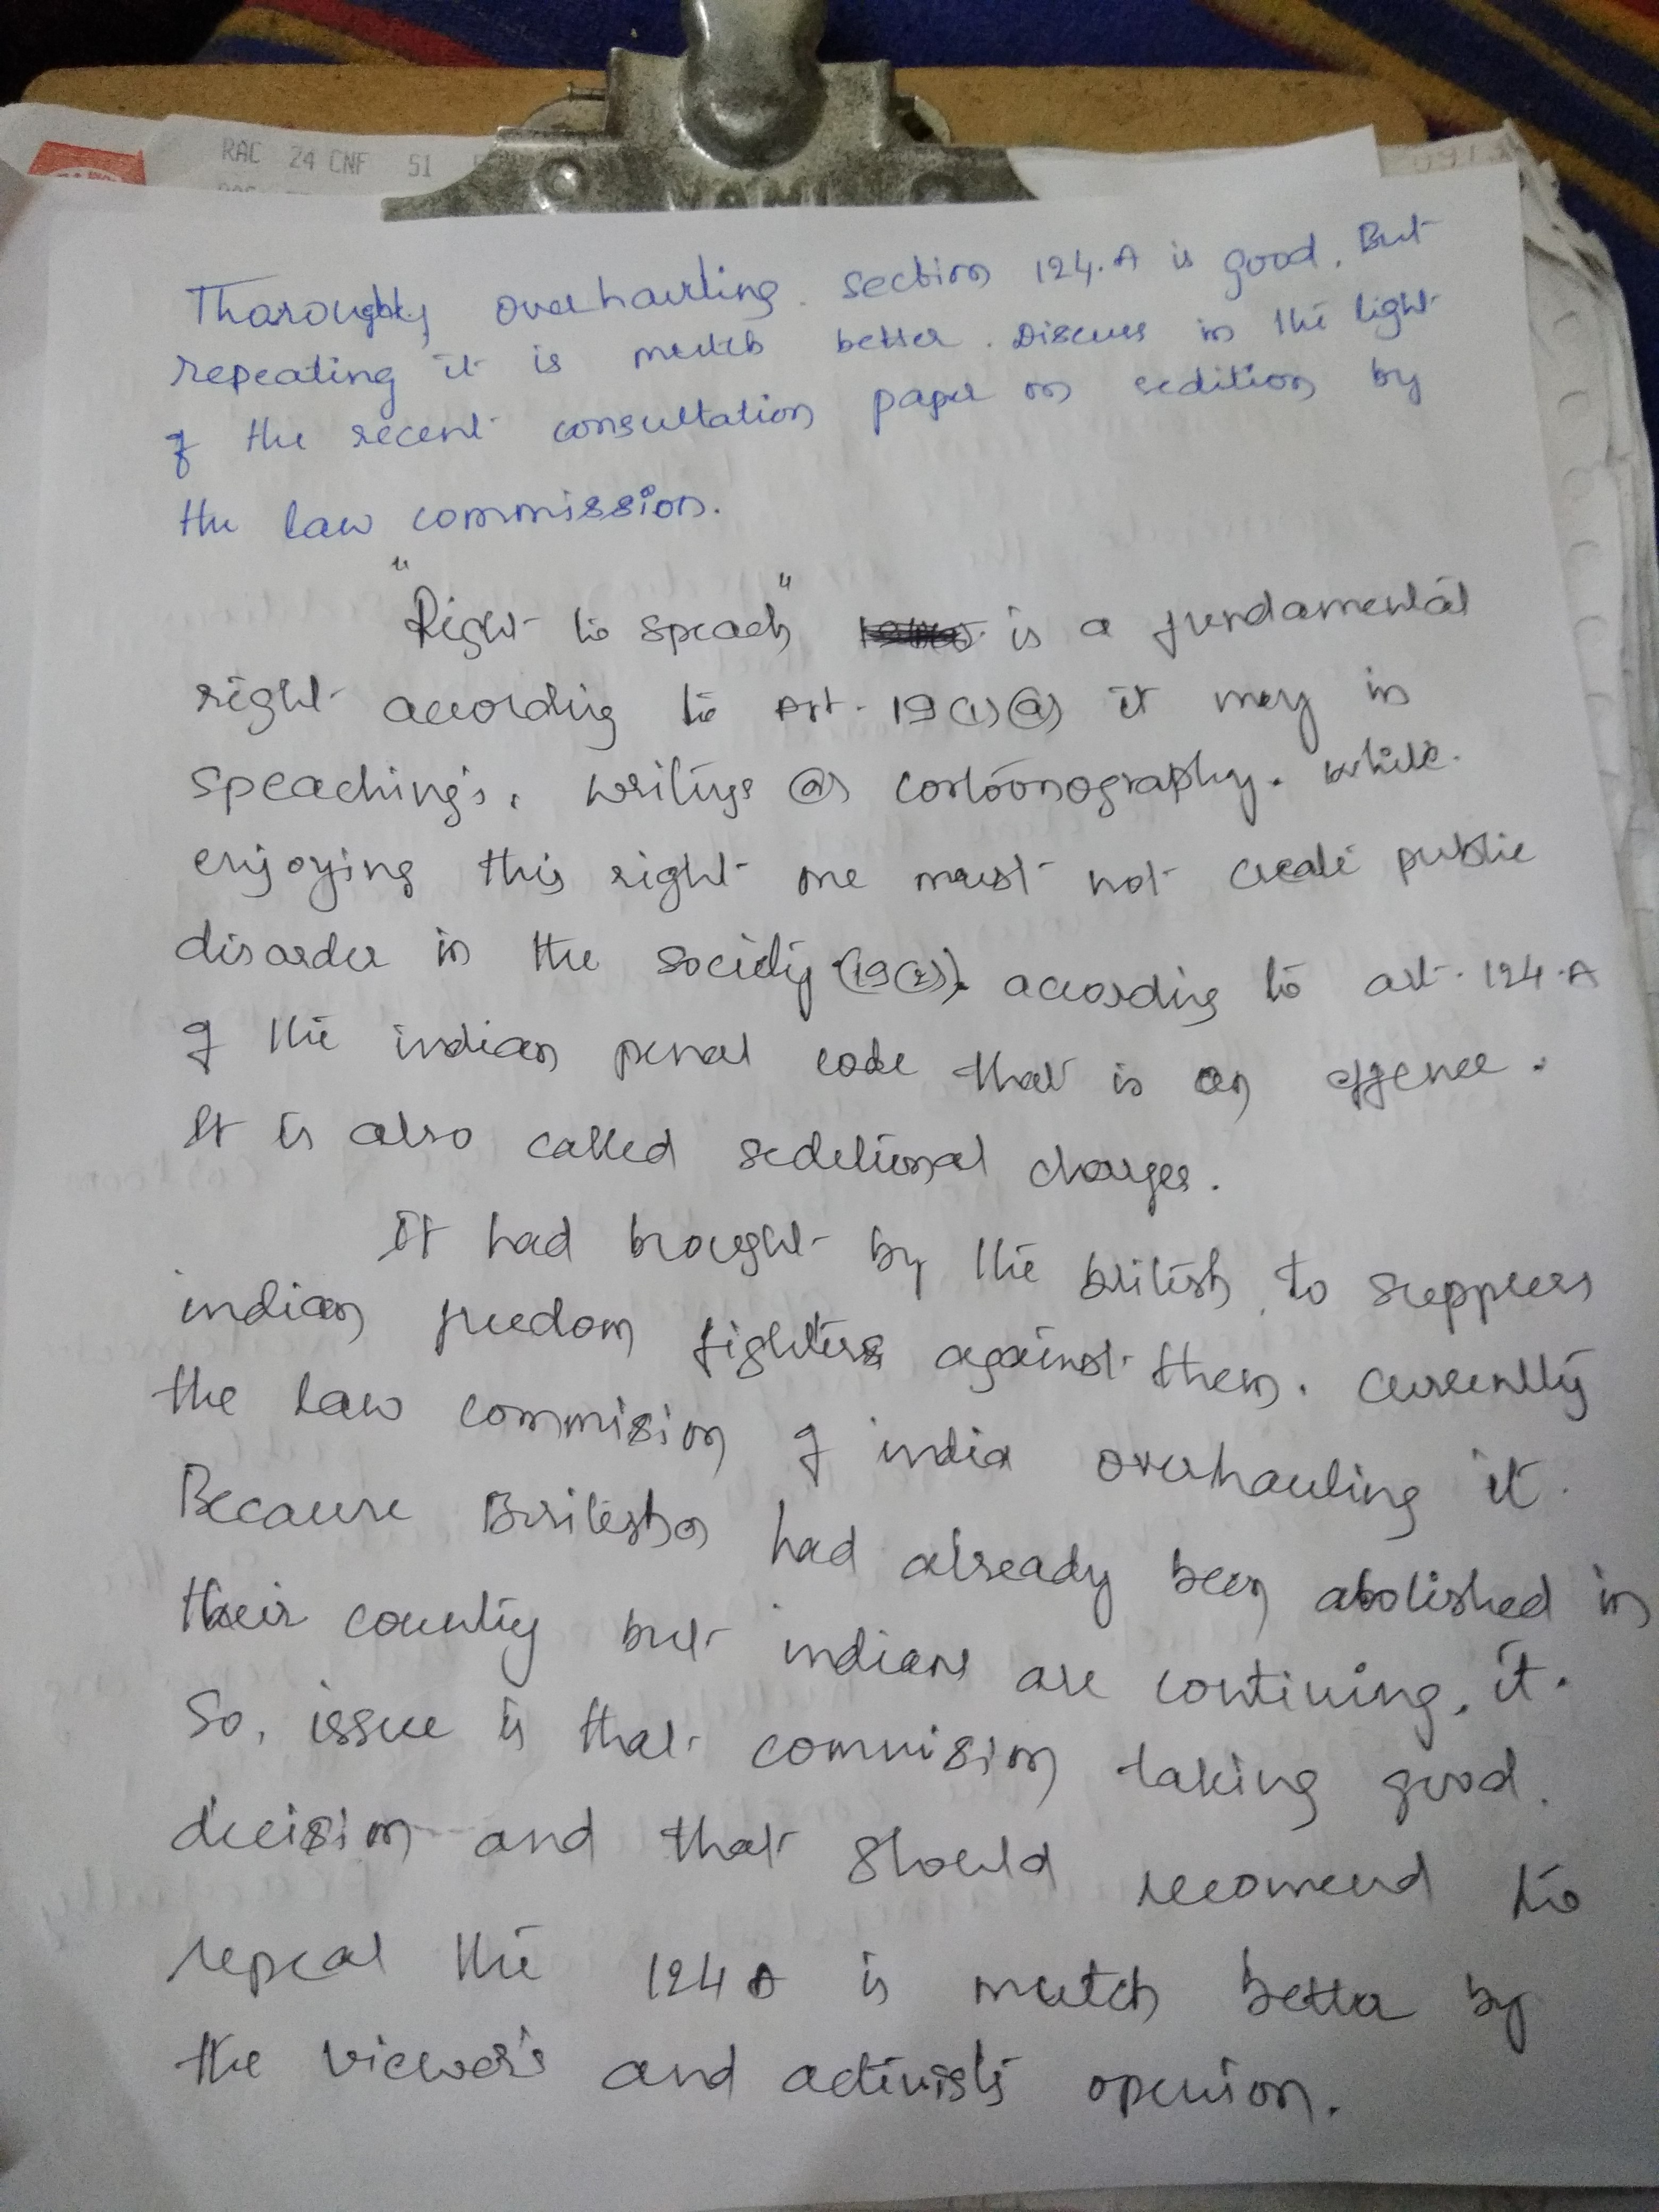 RAC 24 CNF 51
Thoroughly overhauling section 124.A is good. But
repeating it is mutch better. Discuss in the light
of the recent consultation paper on sedition by
the law commission.
"Right to speach" is a fundamental
right according to Art. 19(1)(a) it may in
speaching's, writings (or) cortoonography. while
enjoying this right one must not create public
disorder in the society (19(2)). according to art. 124.A
of the indian penal code that is an offence.
It is also called seditional charges.
It had brought by the british to suppress
indian freedom fighters against them. currently
the law commision of india overhauling it.
Because Britishers had already been abolished in
their country but indians are contining it.
So, issue is that commision taking good
decision and that should recomend to
repeal the 124 A is mutch better by
the viewer's and activists openion.